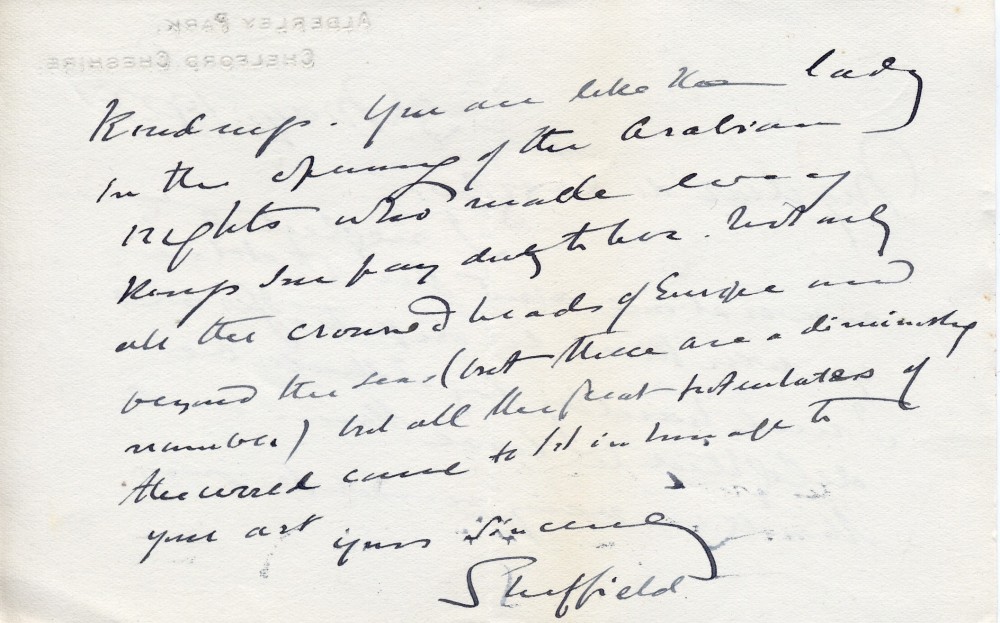 ALDERLEY PARK,
CHELFORD, CHESHIRE.
You are like the lady
in the opening of the Arabian
nights who made every
pay duty to her. Not only
all the crowned heads of Europe and
beyond the seas (but these are a diminishing
number) but all the great potentates of
the world came to in homage to
your art yours sincerely
Sheffield